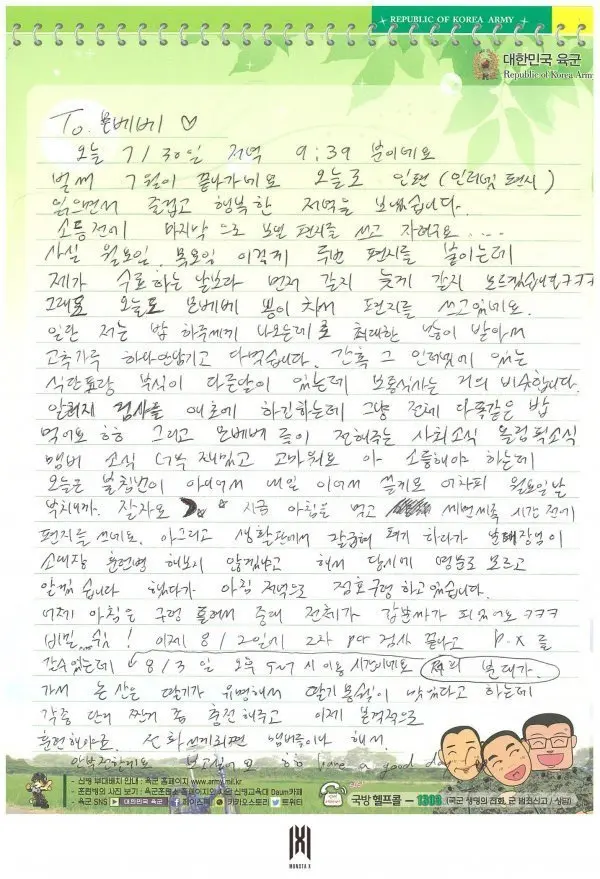 REPUBLIC OF KOREA ARMY
대한민국 육군
Republic of Korea Arm
To. 몬베베 ♡
오늘 7/30일 저녁 9:39 분이네요
벌써 7월이 끝나가네요 오늘도 인편(인터넷 편지)
읽으면서 즐겁고 행복한 저녁을 보냈습니다.
소등전에 마지막으로 보낼 편지를 쓰고 자려구요....
사실 월요일, 목요일 이렇게 두번 편지를 붙이는데
제가 수료하는 날보다 먼저 갈지 늦게 갈지 모르겠습니다ㅋㅋㅋ
그래도 오늘도 몬베베 뽕이 차서 편지를 쓰고있네요.
일단 저는 밥 하루세끼 나오는데 최대한 많이 받아서
고춧가루 하나안남기고 다먹습니다. 간혹 그 인터넷에 있는
식단표랑 부식이 다른날이 있는데 보통식사는 거의 비슷합니다.
알러지 검사를 애초에 하긴하는데 그냥 전체 다똑같은 밥
먹어요 ㅎㅎ 그리고 몬베베 들이 전해주는 사회소식 올림픽소식
멤버 소식 너무 재밌고 고마워요 아 소등해야 하는데
오늘은 불침번이 아니여서 내일 이어서 쓸게요 어차피 월요일날
부치니까. 잘자요 지금 아침을 먹고 세번째쪽 시간 전에
편지를 쓰네요. 아그리고 생활관에서 갈급해 하다가 분대장님이
소대장 훈련병 해보지 않겠냐고 해서 당시에 명분도 모르고
알겠습니다 했다가 아침 저녁으로 점호구령 하고있습니다.
어제 아침은 구령 틀려서 중대 전체가 갑분싸가 되었어요 ㅋㅋㅋ
비밀..쉿! 이제 8/2일에 2차 pcr 검사 끝나고 P.X를
갈수있는데 8/3일 오후 5~7시 이용시간이네요 분대가.
가서 논산은 딸기가 유명해서 딸기몽쉘이 맛있다고 하는데
각종 단거 짠거 좀 충전해주고 이제 본격적으로
훈련해야죠. 전화 쓰게되면 멤버들이나 해서.
안부전할게요 보고싶어요 ㅎㅎ have a good day
- 신병 부대배치 안내 : 육군 홈페이지 www.army.mil.kr
- 훈련병의 사진 보기 : 육군훈련소 홈페이지와 신병교육대 Daum카페
- 육군 SNS 대한민국 육군 페이스북 카카오스토리 트위터
국방 헬프콜 - 1303 (국군 생명의 전화, 군 범죄신고 / 상담)
MONSTA X